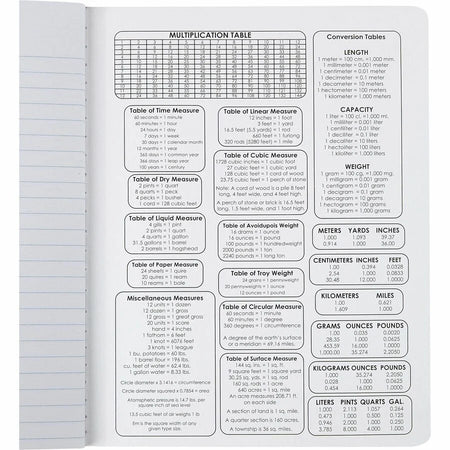 MULTIPLICATION TABLE
1 2 3 4 5 6 7 8 9 10 11 12
2 4 6 8 10 12 14 16 18 20 22 24
12 24 36 48 60 72 84 96 108 120 132 144
Table of Time Measure
60 seconds = 1 minute
60 minutes = 1 hour
24 hours = 1 day
7 days = 1 week
30 days = 1 calendar month
12 months = 1 year
365 days = 1 common year
366 days = 1 leap year
100 years = 1 century
Table of Dry Measure
2 pints = 1 quart
8 quarts = 1 peck
4 pecks = 1 bushel
1 cord = 128 cubic feet
Table of Liquid Measure
4 gills = 1 pint
2 pints = 1 quart
4 quarts = 1 gallon
31.5 gallons = 1 barrel
2 barrels = 1 hogshead
Table of Paper Measure
24 sheets = 1 quire
20 quires = 1 ream
10 reams = 1 bale
Miscellaneous Measures
12 units = 1 dozen
12 dozen = 1 gross
12 gross = 1 great gross
20 units = 1 score
1 hand = 4 inches
1 fathom = 6 feet
1 knot = 6076 feet
3 knots = 1 league
1 bu. potatoes = 60 lbs.
1 barrel flour = 196 lbs.
cu. feet of water = 62.4 lbs.
1 gallon water = 8.33 lbs.
Circle diameter x 3.1416 = circumference
Circle diameter squared x 0.7854 = area
Atomspheric pressure is 14.7 lbs. per
square inch at sea level
13.5 cubic feet of air weighs 1 lb
Em equals the width of any
given type size.
Table of Linear Measure
12 inches = 1 foot
3 feet = 1 yard
16.5 feet (5.5 yards) = 1 rod
660 feet = 1 furlong
320 rods (5280 feet) = 1 mile
Table of Cubic Measure
1728 cubic inches = 1 cubic foot
27 cubic feet = 1 cubic yard
128 cubic feet = 1 cord of wood
23.75 cubic feet = 1 perch of stone
Note: A cord of wood is a pile 8 feet
long, 4 feet wide, and 4 feet high.
A perch of stone or brick is 16.5 feet
long, 1.5 feet wide, and 1 foot high.
Table of Avoirdupois Weight
16 drams = 1 ounce
16 ounces = 1 pound
100 pounds = 1 hundredweight
2000 pounds = 1 ton
2240 pounds = 1 long ton
Table of Troy Weight
24 grains = 1 pennyweight
20 pennyweights = 1 ounce
12 ounces = 1 pound
Table of Circular Measure
60 seconds = 1 minute
60 minutes = 1 degree
360 degrees = 1 circle
A degree of the earth's surface or
a meridian = 69.16 miles.
Table of Surface Measure
144 sq. ins. = 1 sq. ft.
9 sq. feet = 1 sq. yard
30.25 sq. yards = 1 sq. rod
160 sq. rods = 1 acre
640 acres = 1 sq. mile
An acre measures 208.71 ft.
on each side
A section of land is 1 sq. mile.
A quarter section is 160 acres.
A township is 36 sq. miles.
Conversion Tables
LENGTH
1 meter = 100 cm. =1,000 mm.
1 millimeter = 0.001 meter
1 centimeter = 0.01 meter
1 decimeter = 0.1 meter
1 decameter = 10 meters
1 hectometer = 100 meters
1 kilometer = 1,000 meters
CAPACITY
1 liter = 100 cl. =1,000 ml.
1 milliliter = 0.001 liter
1 centiliter = 0.01 liter
1 deciliter = 0.1 liter
1 decaliter = 10 liters
1 hectoliter = 100 liters
1 kiloliter = 1,000 liters
WEIGHT
1 gram = 100 cg. =1,000 mg.
1 milligram = 0.001 gram
1 centigram = 0.01 gram
1 decigram = 0.1 gram
1 decagram = 10 grams
1 hectogram = 100 grams
1 kilogram = 1,000 grams
METERS YARDS INCHES
1.000 1.093 39.37
0.914 1.000 36.00
CENTIMETERS INCHES FEET
1.00 0.394 0.0328
2.54 1.00 0.0833
30.48 12.00 1.000
KILOMETERS MILES
1.000 0.621
1.609 1.000
GRAMS OUNCES POUNDS
1.00 0.035 0.0020
28.35 1.000 0.0625
453.59 16.00 1.0000
1,000.00 35.274 2.2050
KILOGRAMS OUNCES POUNDS
1.00 35.274 2.2050
0.028 1.000 0.0625
0.454 16.000 1.0000
LITERS PINTS QUARTS GAL.
1.000 2.113 1.057 0.264
0.473 1.000 0.500 0.125
0.946 2.000 1.000 0.250
3.785 8.000 4.000 1.000